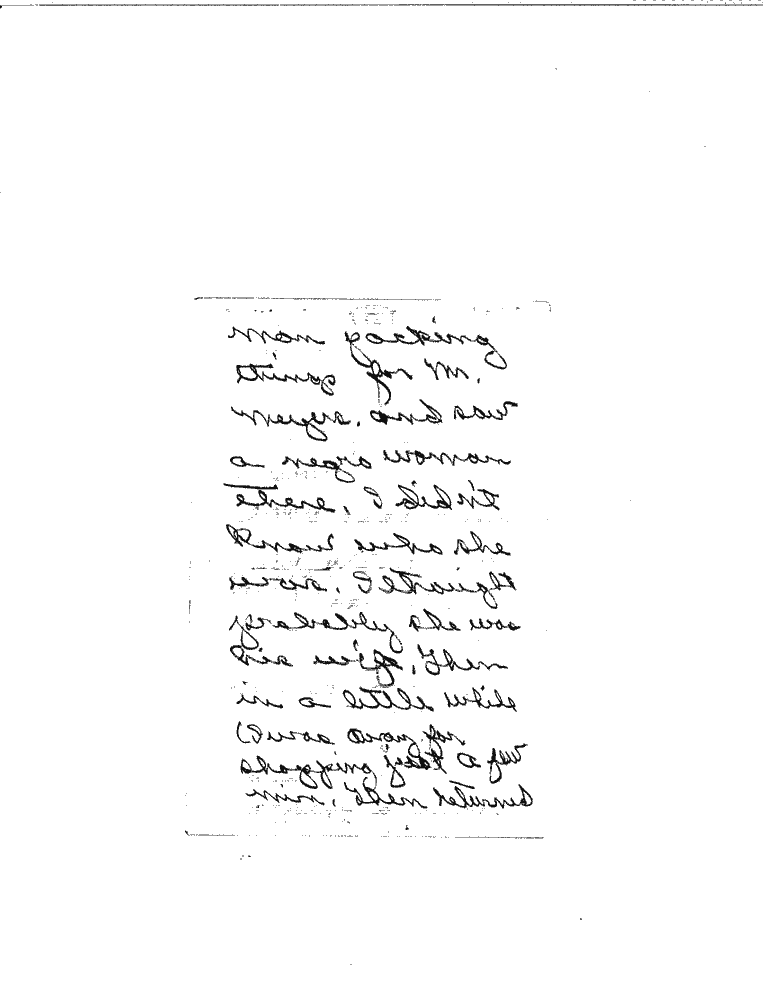 man packing
things for Mr.
Meyers. and saw
a negro woman
there. I didn't
know who she
was. I thought
probably she was
his wife. Then
in a little while
(I was away for
shopping just a few
min. then returned